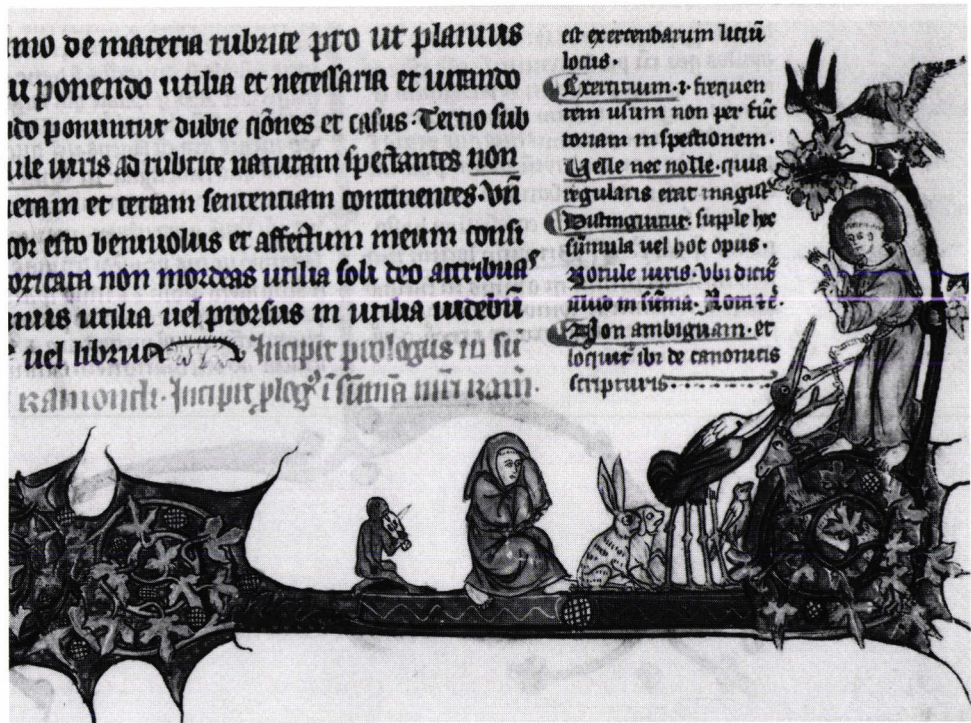 mo de materia rubrice pro ut planius
u ponendo utilia et necessaria et uitando
do ponuntur dubie qōnes et casus. Tertio sub
ule iuris ad rubrice naturam spectantes non
ueram et certam sententiam continentes. Vn̄
tor esto beniuolus et affectum meum consi
oricata non mordeas utilia soli deo attribuas
mus utilia uel prorsus in utilia uidebu
uel librum Incipit prologus in su
Incipit plog' ī sūmā
est exercendarum litiū
locus.
Exertitium .i. frequen
tem usum non per fūc
toriam inspectionem.
Uelle nec nolle. quia
regularis erat
Distinguitur. supple hec
sūmula uel hoc opus.
Notule iuris. Vbi
illud in sūma.
Non ambiguam. et
loquitur ibi de canonicis
scripturis.